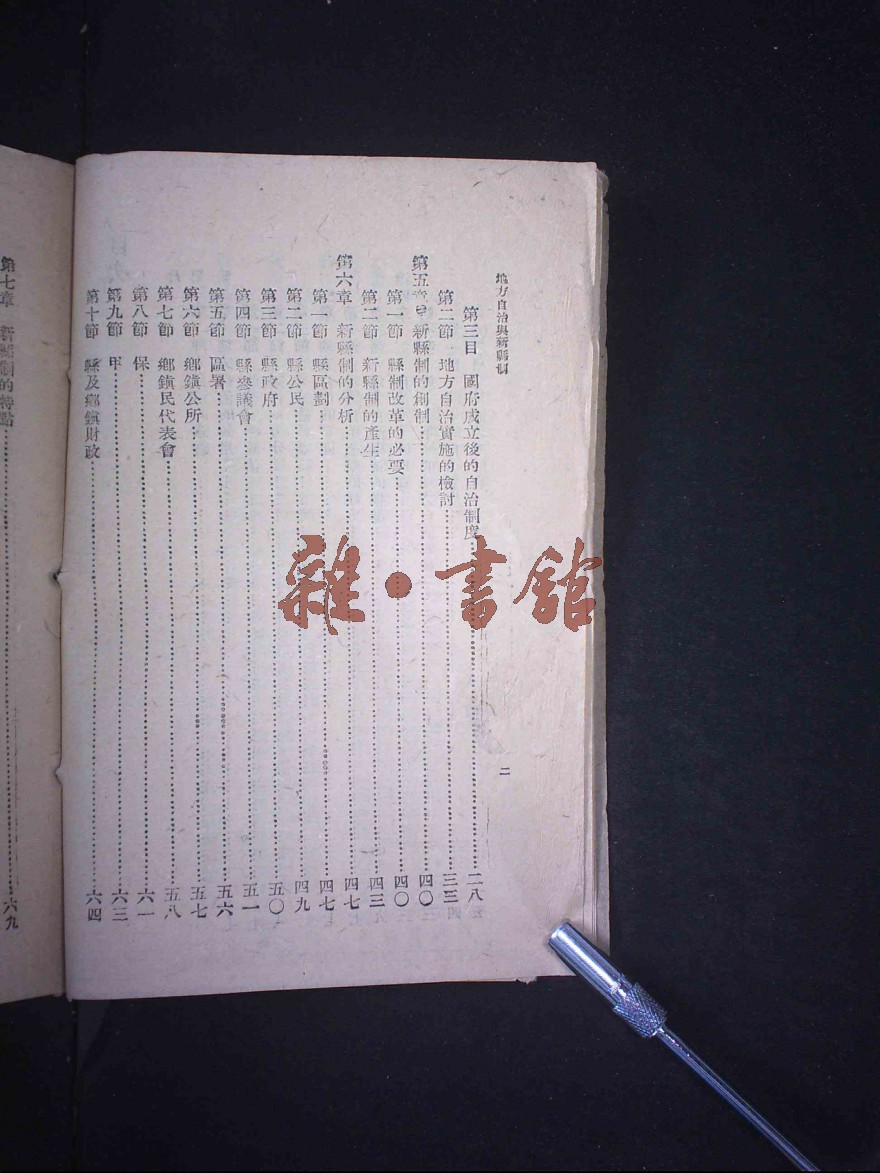 地方自治與新縣制
二
第三目 國府成立後的自治制度⋯⋯二八
第二節 地方自治實施的檢討⋯⋯三三
第五章 新縣制的創制⋯⋯四〇
第一節 縣制改革的必要⋯⋯四〇
第二節 新縣制的產生⋯⋯四三
第六章 新縣制的分析⋯⋯四七
第一節 縣區劃⋯⋯四七
第二節 縣公民⋯⋯四九
第三節 縣政府⋯⋯五〇
第四節 縣參議會⋯⋯五一
第五節 區署⋯⋯五六
第六節 鄉鎮公所⋯⋯五七
第七節 鄉鎮民代表會⋯⋯五八
第八節 保⋯⋯六一
第九節 甲⋯⋯六三
第十節 縣及鄉鎮財政⋯⋯六四
第七章 新縣制的特點⋯⋯六九
雜·書館